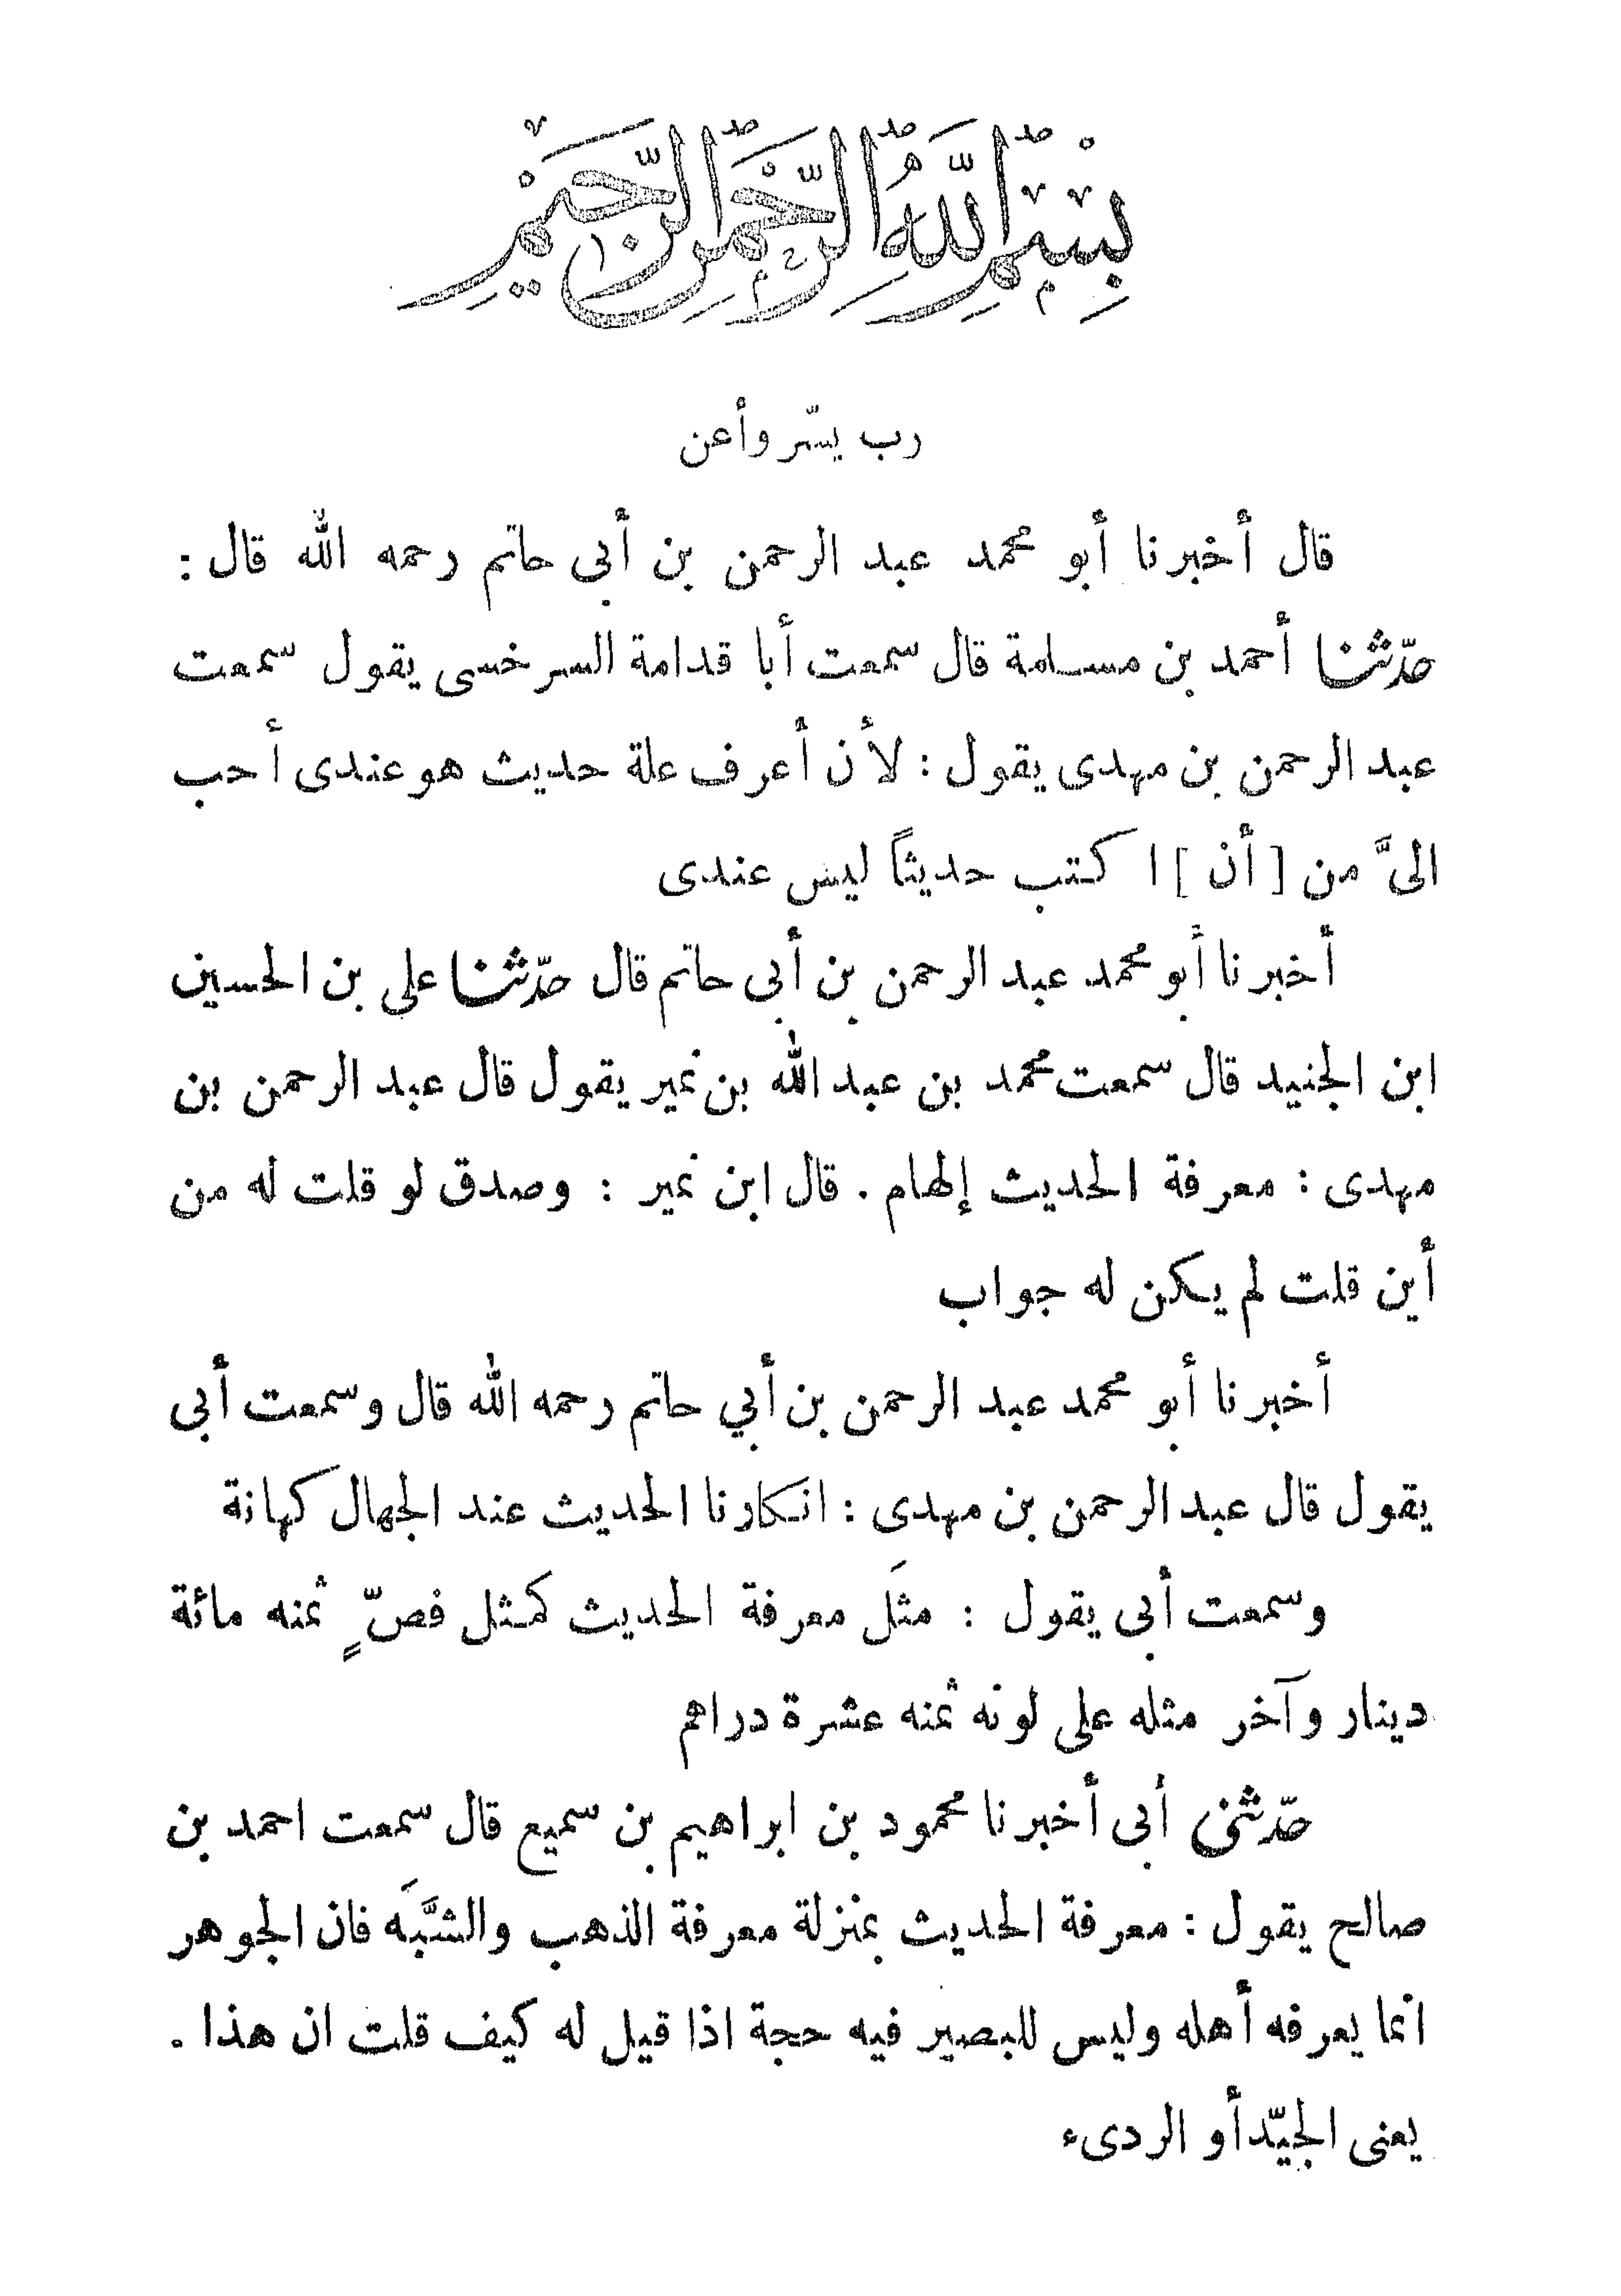 بِسْمِ اللَّهِ الرَّحْمَنِ الرَّحِيمِ
رب يسّر وأعن
قال أخبرنا أبو محمد عبد الرحمن بن أبي حاتم رحمه الله قال :
حدّثنا أحمد بن مسلمة قال سمعت أبا قدامة السرخسى يقول سمعت
عبد الرحمن بن مهدى يقول : لأن أعرف علة حديث هو عندى أحب
الىَّ من [ أن ] اكتب حديثاً ليس عندى
أخبرنا أبو محمد عبد الرحمن بن أبى حاتم قال حدّثنا على بن الحسين
ابن الجنيد قال سمعت محمد بن عبد الله بن نمير يقول قال عبد الرحمن بن
مهدى : معرفة الحديث إلهام . قال ابن نمير : وصدق لو قلت له من
أين قلت لم يكن له جواب
أخبرنا أبو محمد عبد الرحمن بن أبي حاتم رحمه الله قال وسمعت أبى
يقول قال عبد الرحمن بن مهدى : انكارنا الحديث عند الجهال كهانة
وسمعت أبى يقول : مثَل معرفة الحديث كمثل فصّ ٍ ثمنه مائة
دينار وآخر مثله على لونه ثمنه عشرة دراهم
حدّثنى أبى أخبرنا محمود بن ابراهيم بن سميع قال سمعت احمد بن
صالح يقول : معرفة الحديث بمنزلة معرفة الذهب والشَّبَه فان الجوهر
انما يعرفه أهله وليس للبصير فيه حجة اذا قيل له كيف قلت ان هذا .
يعنى الجيّد أو الردىء